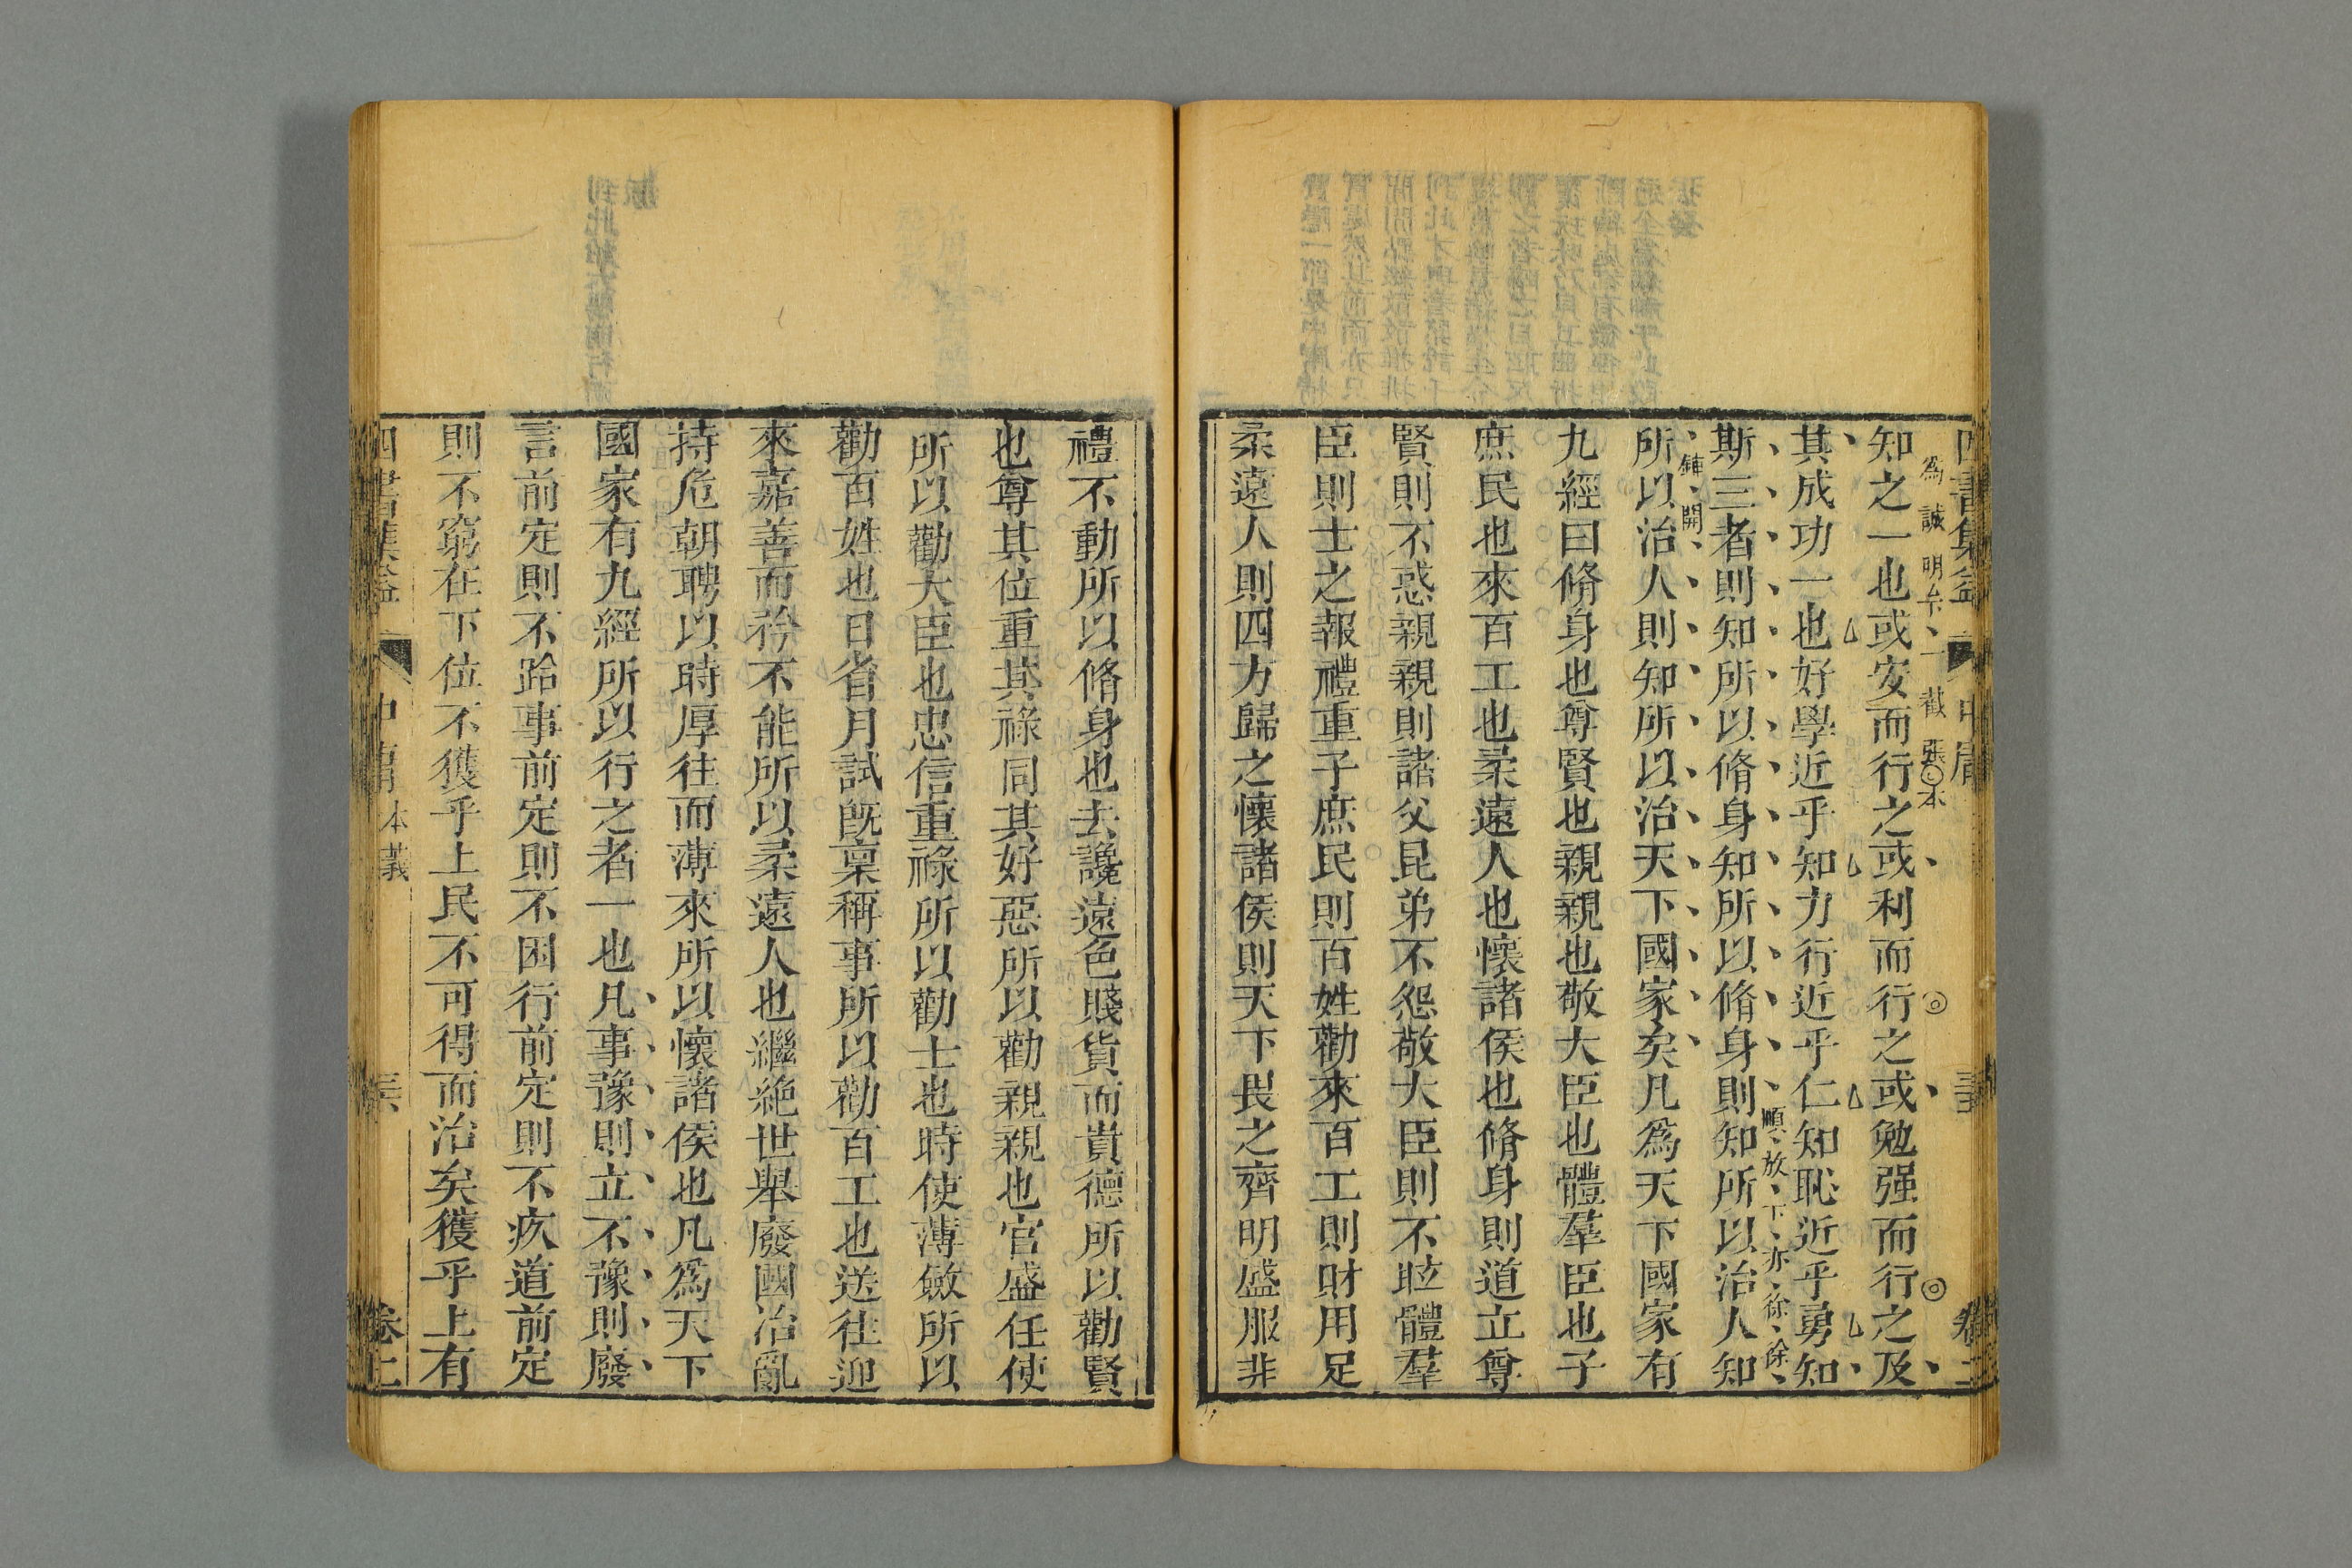 四書集益
中庸
知之一也或安而行之或利而行之或勉强而行之及
其成功一也好學近乎知力行近乎仁知恥近乎勇知
斯三者則知所以脩身知所以脩身則知所以治人知
順放下亦徐徐
所以治人則知所以治天下國家矣凡爲天下國家有
九經曰脩身也尊賢也親親也敬大臣也體羣臣也子
庶民也來百工也柔遠人也懷諸侯也脩身則道立尊
賢則不惑親親則諸父昆弟不怨敬大臣則不眩體羣
臣則士之報禮重子庶民則百姓勸來百工則財用足
柔遠人則四方歸之懷諸侯則天下畏之齊明盛服非
禮不動所以脩身也去讒遠色賤貨而貴德所以勸賢
也尊其位重其祿同其好惡所以勸親親也官盛任使
所以勸大臣也忠信重祿所以勸士也時使薄斂所以
勸百姓也日省月試旣稟稱事所以勸百工也送往迎
來嘉善而矜不能所以柔遠人也繼絶世舉廢國治亂
持危朝聘以時厚往而薄來所以懷諸侯也凡爲天下
國家有九經所以行之者一也凡事豫則立不豫則廢
言前定則不跲事前定則不困行前定則不疚道前定
則不窮在下位不獲乎上民不可得而治矣獲乎上有
四書集益
中庸
本義
卷上